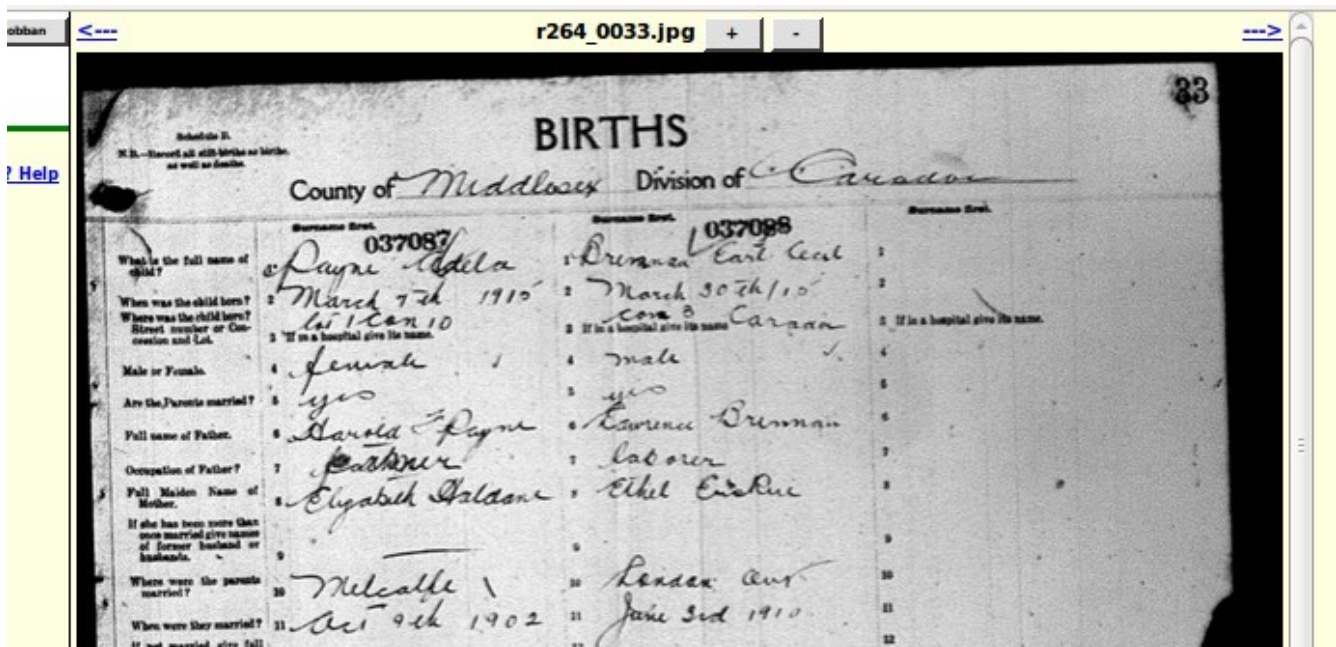 obban
<--- r264_0033.jpg + - --->
? Help
33
Schedule B.
N.B.—Record all still-births as births,
as well as deaths.
BIRTHS
County of Middlesex Division of Caradoc
Surname first. Surname first. Surname first.
037087 037088
What is the full name of child? 1 Payne Adela 1 Brennan Earl Cecil 1
When was the child born? 2 March 7th 1915 2 March 30th/15 2
Where was the child born? Street number or Concession and Lot. lot 1 Con 10 con 3 Caradoc
3 If in a hospital give its name. 3 If in a hospital give its name. 3 If in a hospital give its name.
Male or Female. 4 female 4 male 4
Are the Parents married? 5 yes 5 yes 5
Full name of Father. 6 Harold Payne 6 Lawrence Brennan 6
Occupation of Father? 7 7 laborer 7
Full Maiden Name of Mother. 8 Elizabeth Haldane 8 Ethel Erskine 8
If she has been more than once married give names of former husband or husbands. 9 9 9
Where were the parents married? 10 Metcalfe 10 London Ont 10
When were they married? 11 Oct 9th 1902 11 June 3rd 1910 11
If not married, give full 12 12